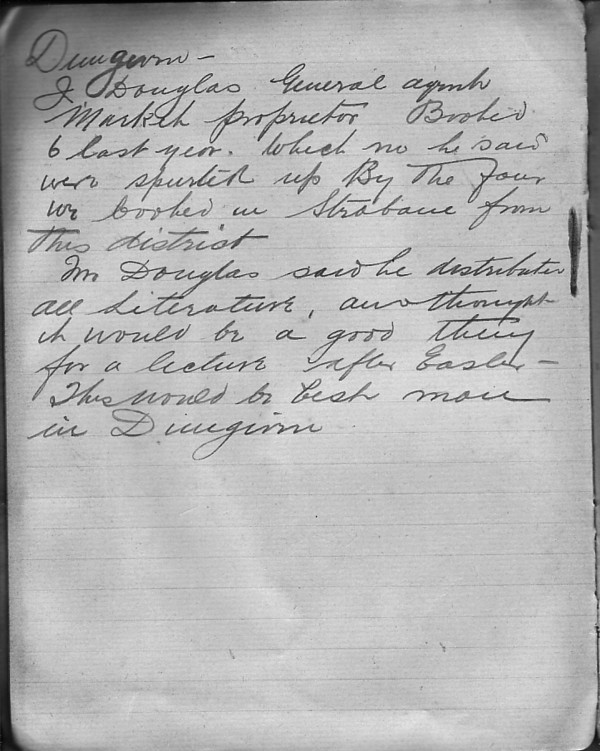 Dungiven –
J Douglas General agent
Market proprietor Booked
6 last year. Which no he said
were spurted up By The four
we booked in Strabane from
This district
Mr Douglas said he distributed
all Literature, and thought
it would be a good thing
for a lecture after Easter –
This would be best man
in Dungiven